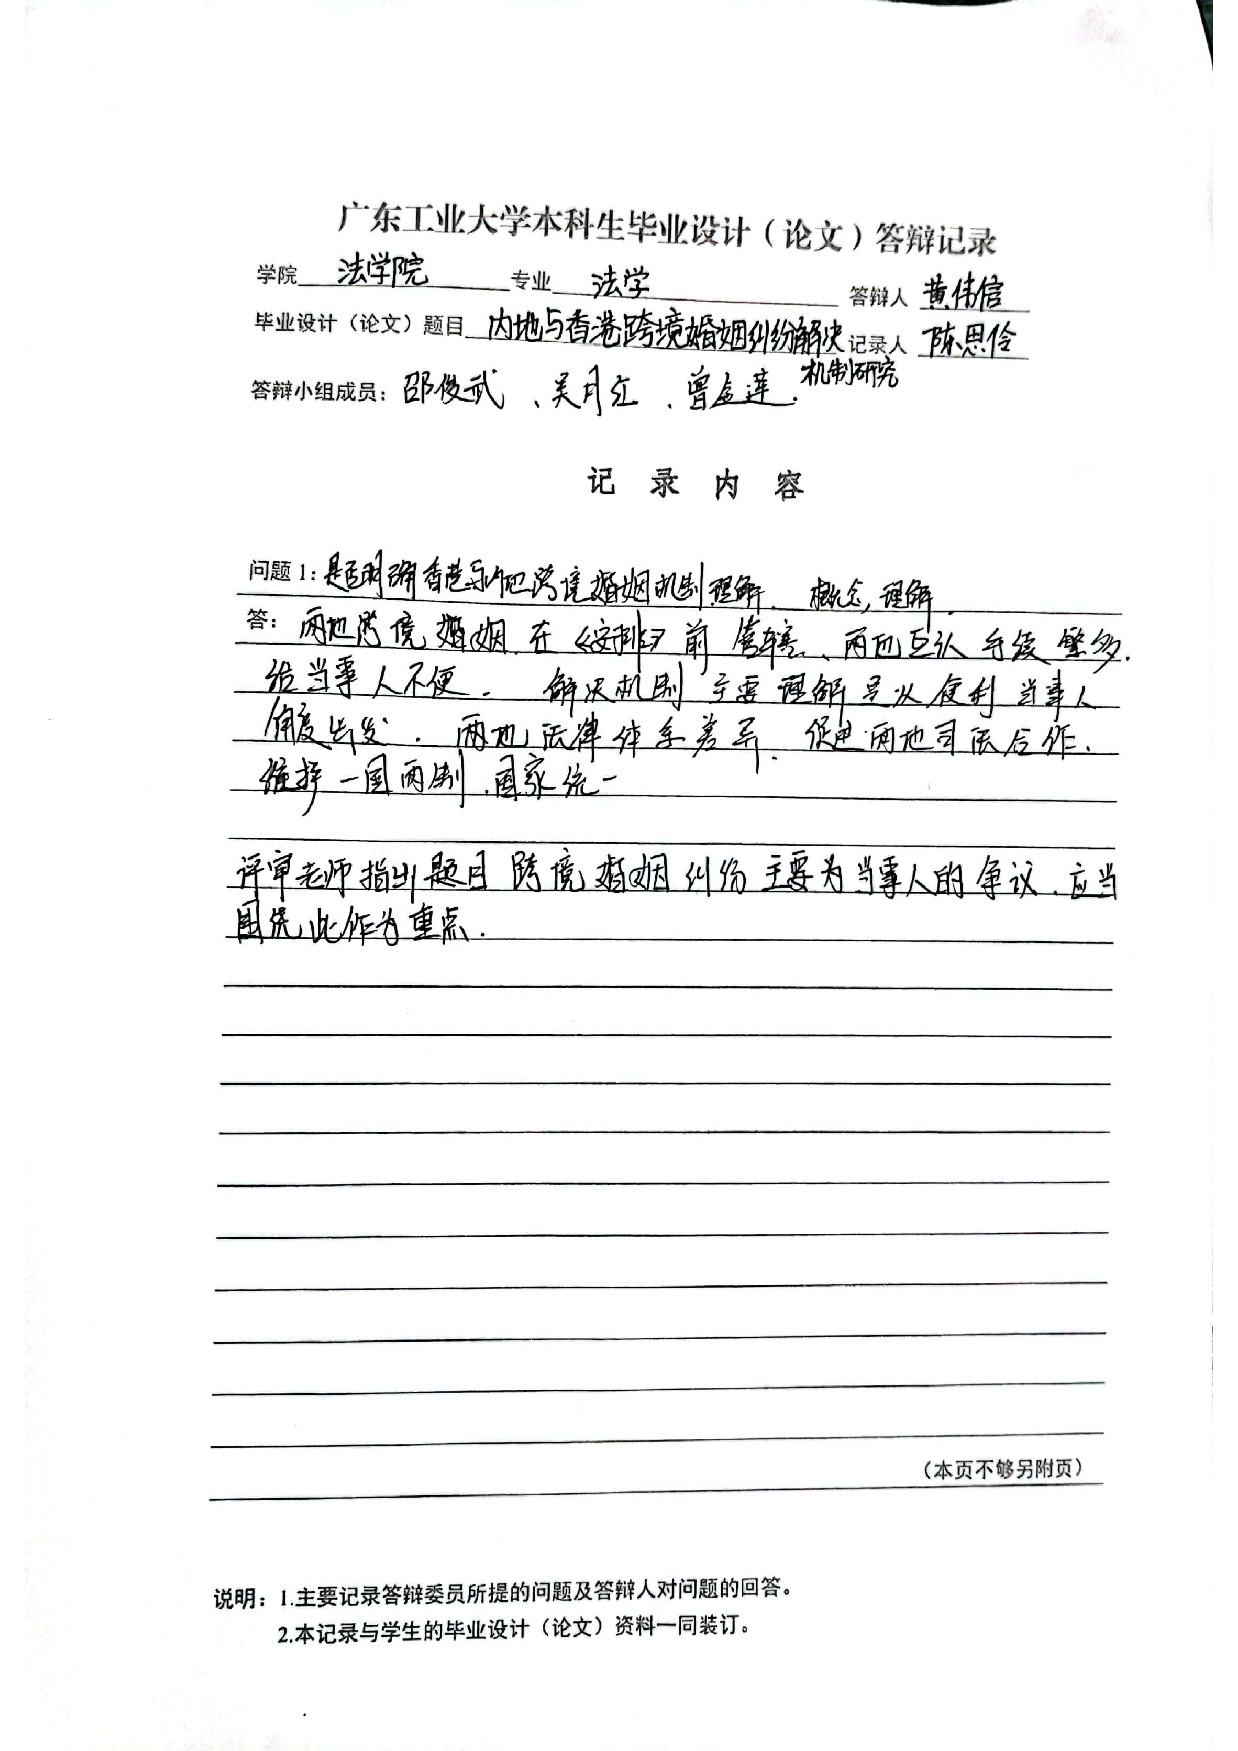 广东工业大学本科生毕业设计（论文）答辩记录
学院 法学院 专业 法学 答辩人 黄伟信
毕业设计（论文）题目 内地与香港跨境婚姻纠纷解决 记录人 陈思伶
机制研究
答辩小组成员：邵俊武、吴月红、曾金莲.
记 录 内 容
问题1：是否明确香港与内地跨境婚姻机制理解. 概念, 理解.
答：两地跨境婚姻在《安排》前管辖、两地互认手续繁多.
给当事人不便. 解决机制主要理解是从便利当事人
角度出发. 两地法律体系差异. 促进两地司法合作、
维护一国两制、国家统一
评审老师指出题目跨境婚姻纠纷主要为当事人的争议、应当
围绕此作为重点.
（本页不够另附页）
说明：1.主要记录答辩委员所提的问题及答辩人对问题的回答。
2.本记录与学生的毕业设计（论文）资料一同装订。